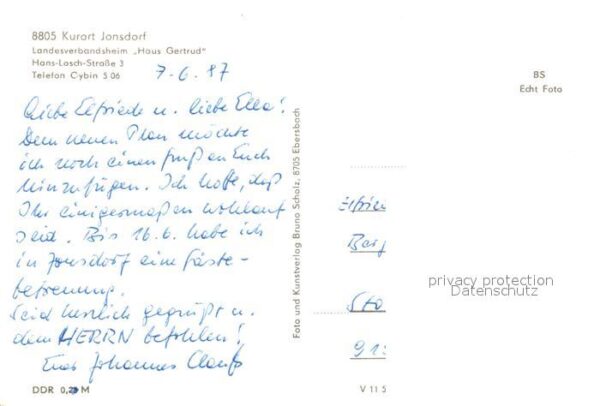 8805 Kurort Jonsdorf
Landesverbandsheim „Haus Gertrud"
Hans-Lasch-Straße 3
Telefon Cybin 506
7.6.87
Liebe Elfriede u. liebe Ella!
Dem neuen Plan möchte
ich noch einen Gruß an Euch
hinzufügen. Ich hoffe, daß
Ihr einigermaßen wohlauf
seid. Bis 16.6. habe ich
in Jonsdorf eine Gäste-
betreuung.
Seid herzlich gegrüßt u.
dem HERRN befohlen!
Euer Johannes
DDR 0,20 M
Foto und Kunstverlag Bruno Scholz, 8705 Ebersbach
BS
Echt Foto
Elfrie
Berg
privacy protection
Datenschutz
Sto
V 11 5